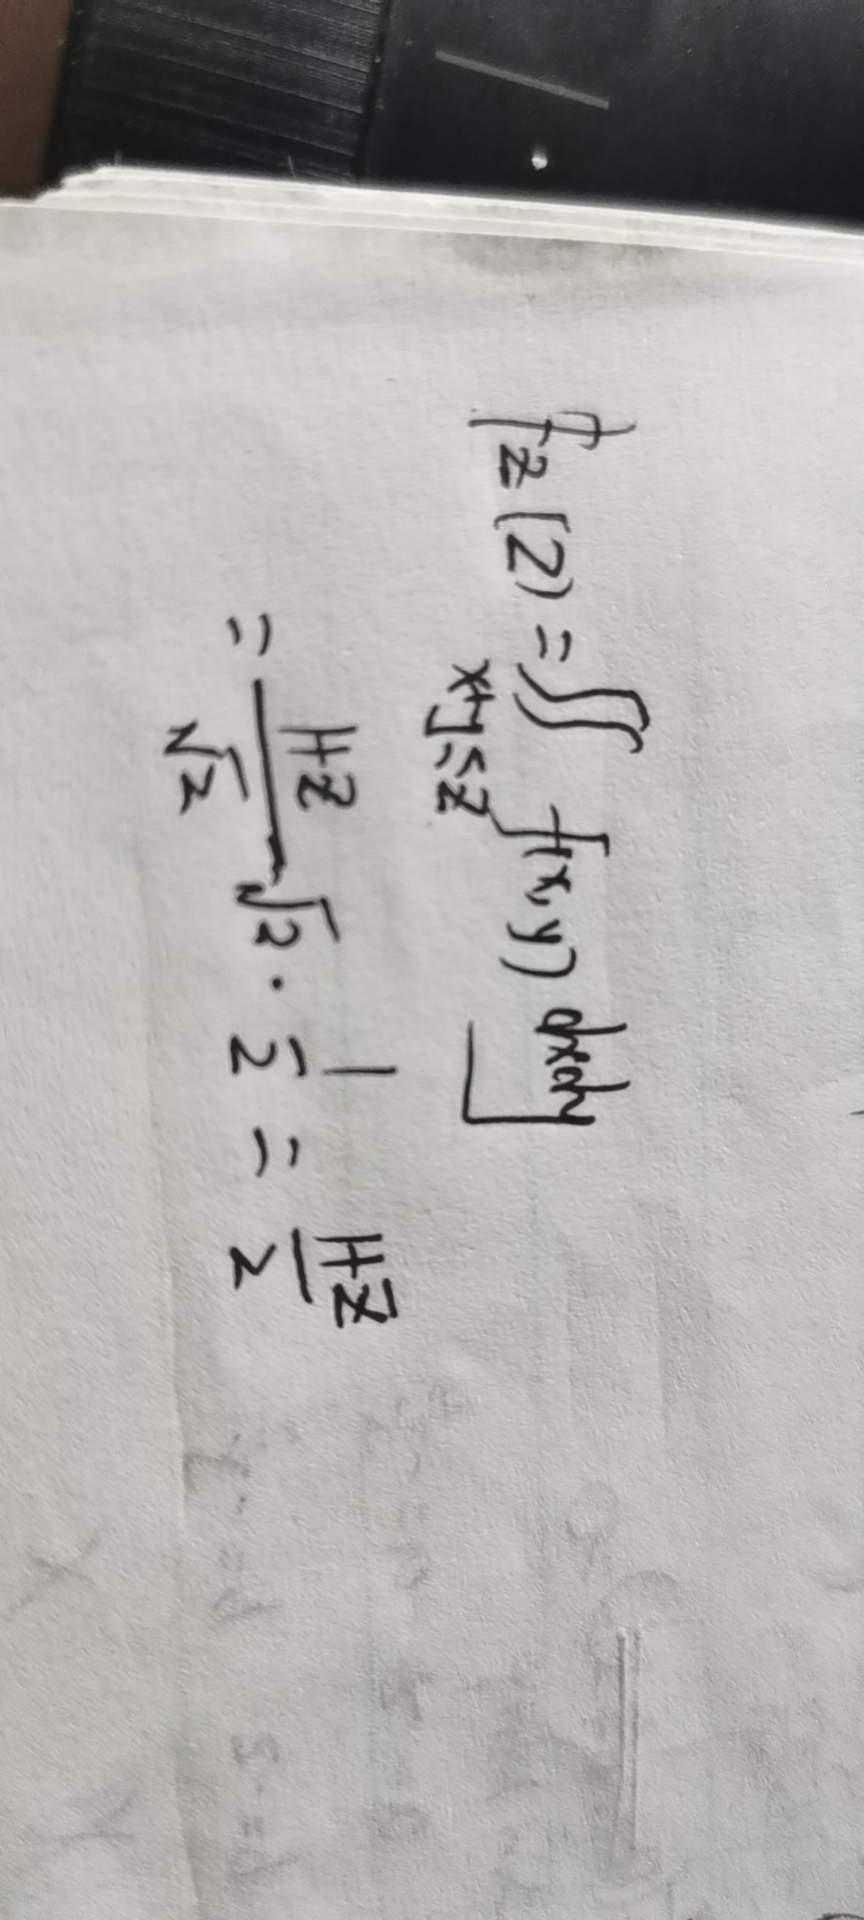 f_Z(z) = ∬_{x+y≤z} f(x,y) dxdy
= \frac{1+z}{\sqrt{2}} \sqrt{2} · \frac{1}{2} = \frac{1+z}{2}